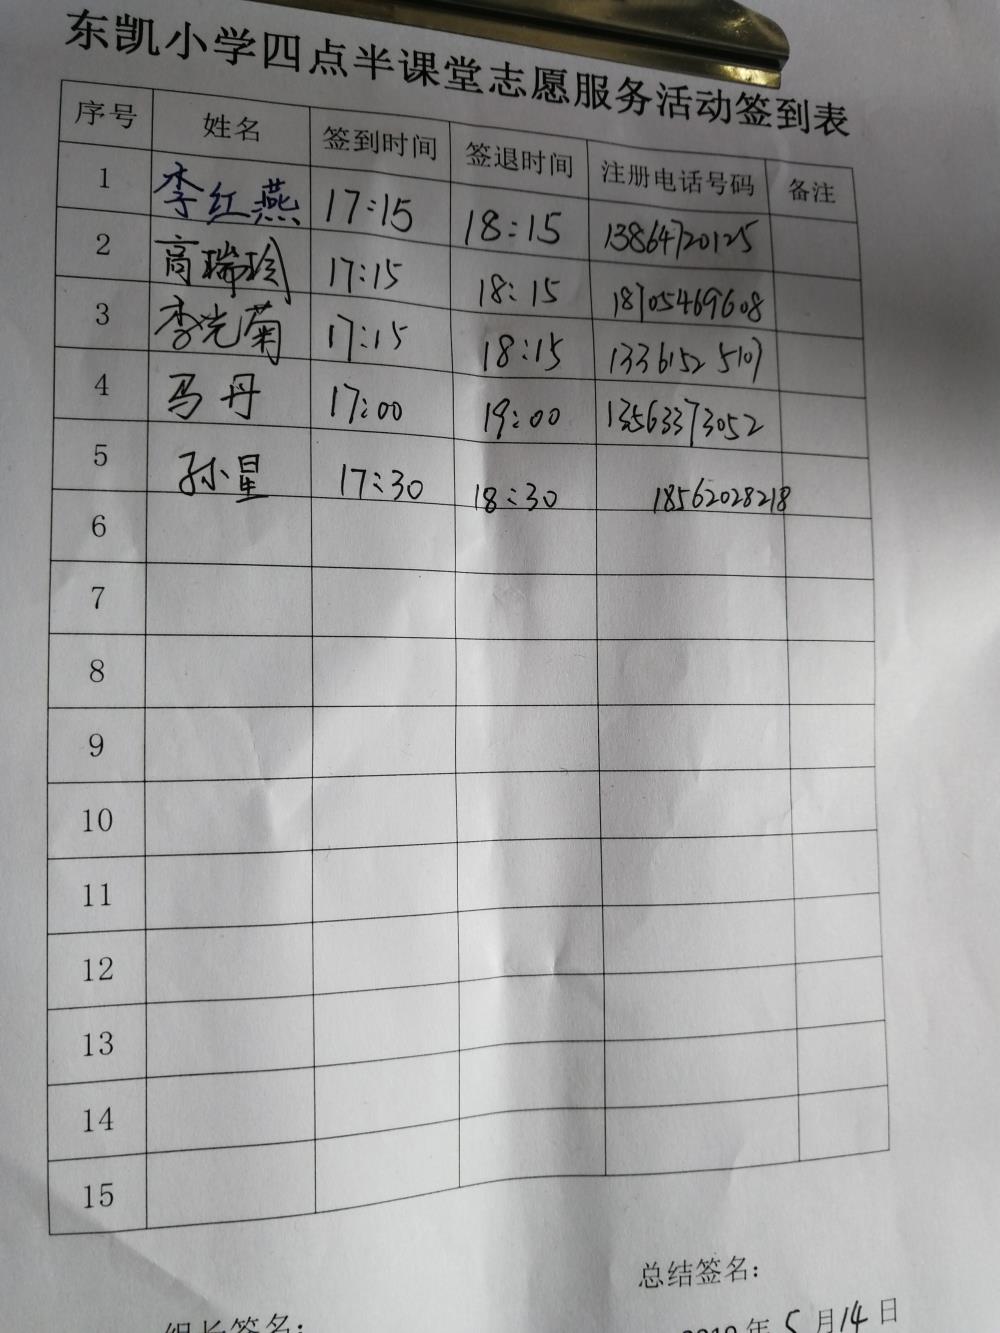 东凯小学四点半课堂志愿服务活动签到表
序号 姓名 签到时间 签退时间 注册电话号码 备注
1 李红燕 17:15 18:15 13864720125
2 高瑞玲 17:15 18:15 18705469608
3 李光菊 17:15 18:15 13361525107
4 马丹 17:00 19:00 13563373052
5 孙星 17:30 18:30 18562028218
6
7
8
9
10
11
12
13
14
15
总结签名：
组长签名：
2019年5月14日